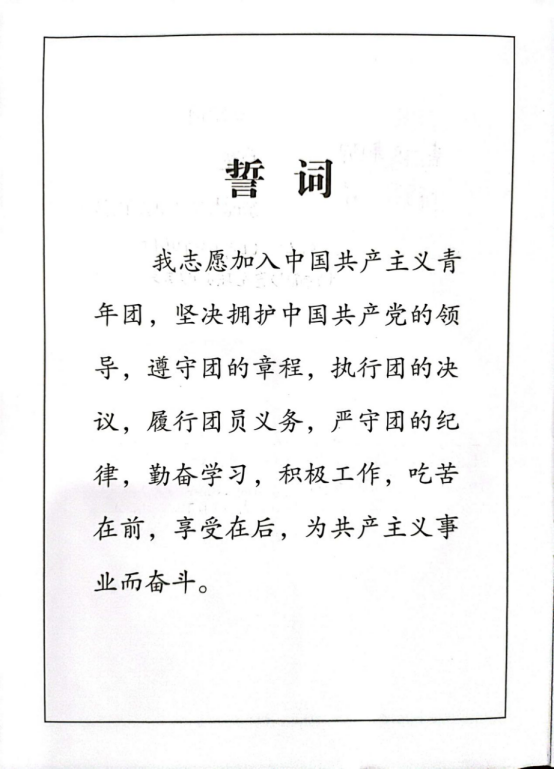 誓 词
我志愿加入中国共产主义青
年团，坚决拥护中国共产党的领
导，遵守团的章程，执行团的决
议，履行团员义务，严守团的纪
律，勤奋学习，积极工作，吃苦
在前，享受在后，为共产主义事
业而奋斗。